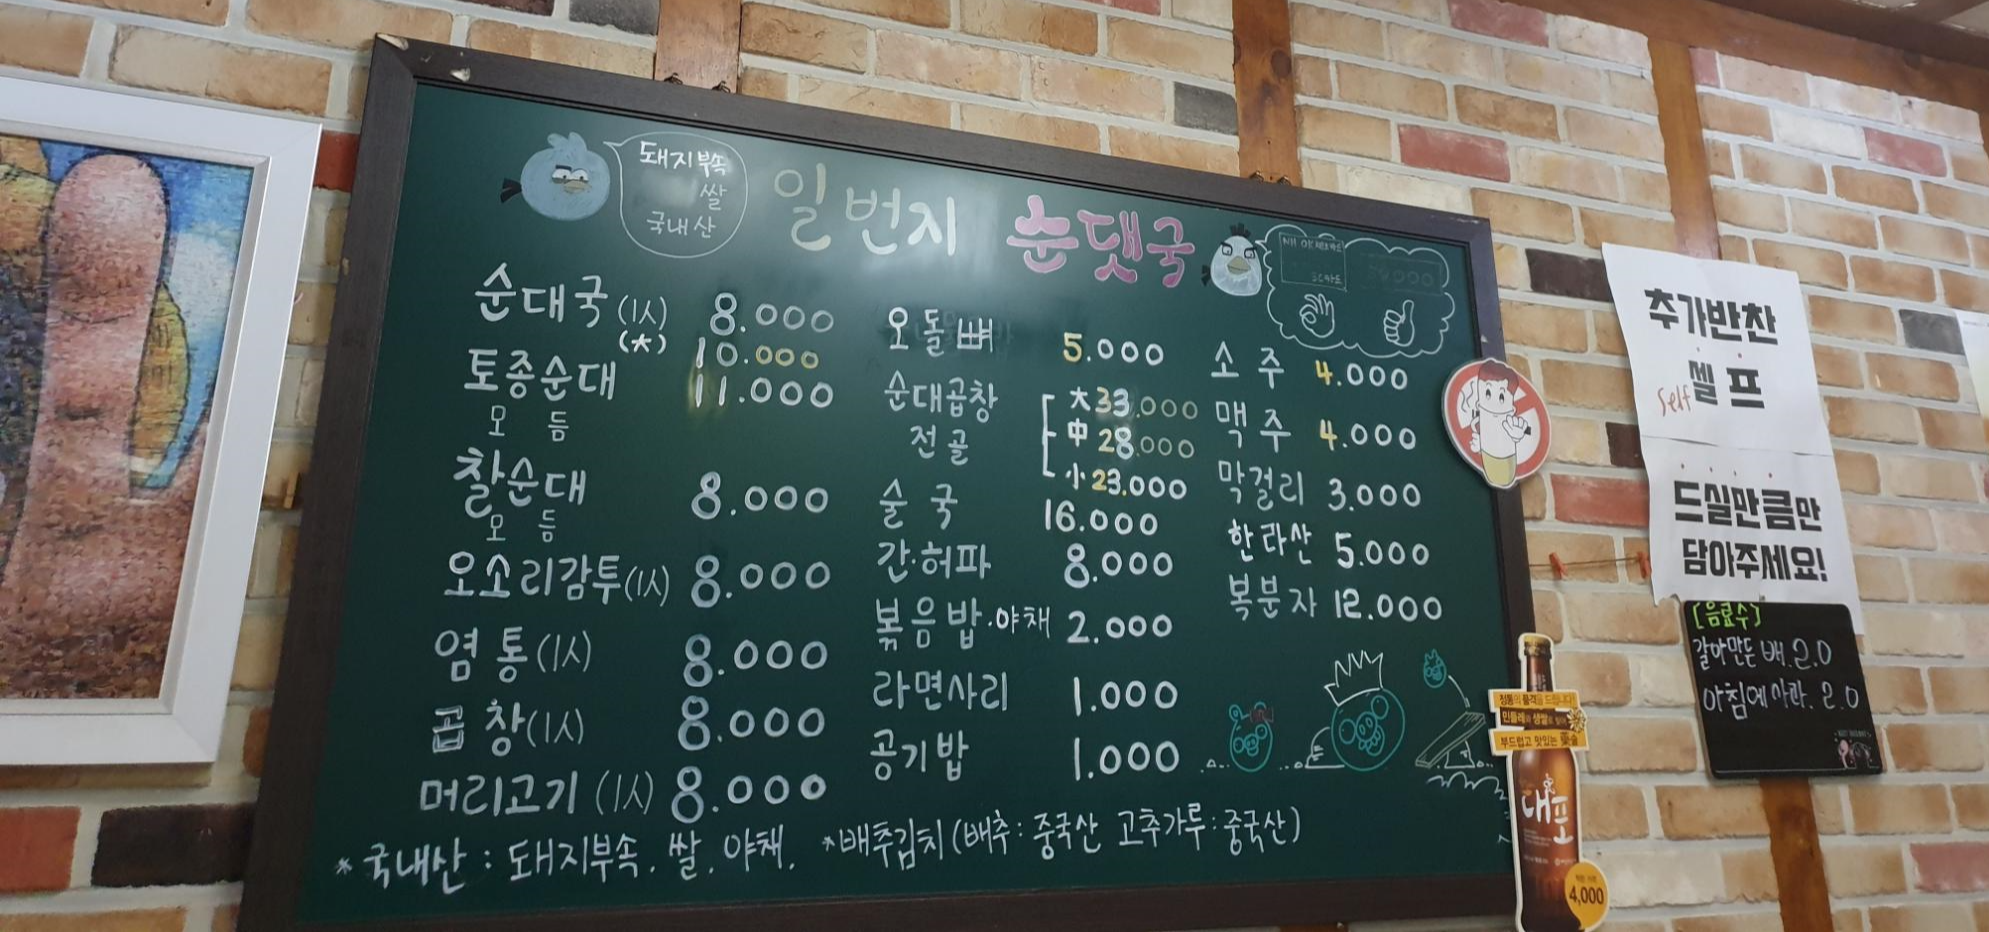 돼지부속
쌀
국내산
일번지 순댓국
순대국(1人) 8.000
(大) 10.000
토종순대 11.000
모듬
찰순대 8.000
모듬
오소리감투(1人) 8.000
염통(1人) 8.000
곱창(1人) 8.000
머리고기(1人) 8.000
오돌뼈 5.000
순대곱창 大 33.000
전골 中 28.000
小 23.000
술국 16.000
간·허파 8.000
볶음밥·야채 2.000
라면사리 1.000
공기밥 1.000
소주 4.000
맥주 4.000
막걸리 3.000
한라산 5.000
복분자 12.000
*국내산: 돼지부속. 쌀. 야채. *배추김치(배추: 중국산 고추가루: 중국산)
추가반찬
Self 셀프
드실만큼만
담아주세요!
[음료수]
갈아만든 배. 2.0
아침에사과. 2.0
정통의 품격을 드립니다!
민들레와 생쌀로 빚어
부드럽고 맛있는 藥술
대포
4,000